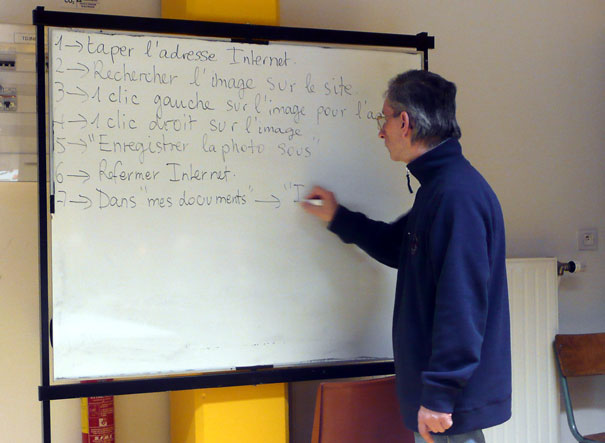 1→ taper l'adresse Internet.
2→ Rechercher l'image sur le site.
3→ 1 clic gauche sur l'image pour l'a
4→ 1 clic droit sur l'image
5→ "Enregistrer la photo sous"
6→ Refermer Internet.
7→ Dans "mes documents" → "I